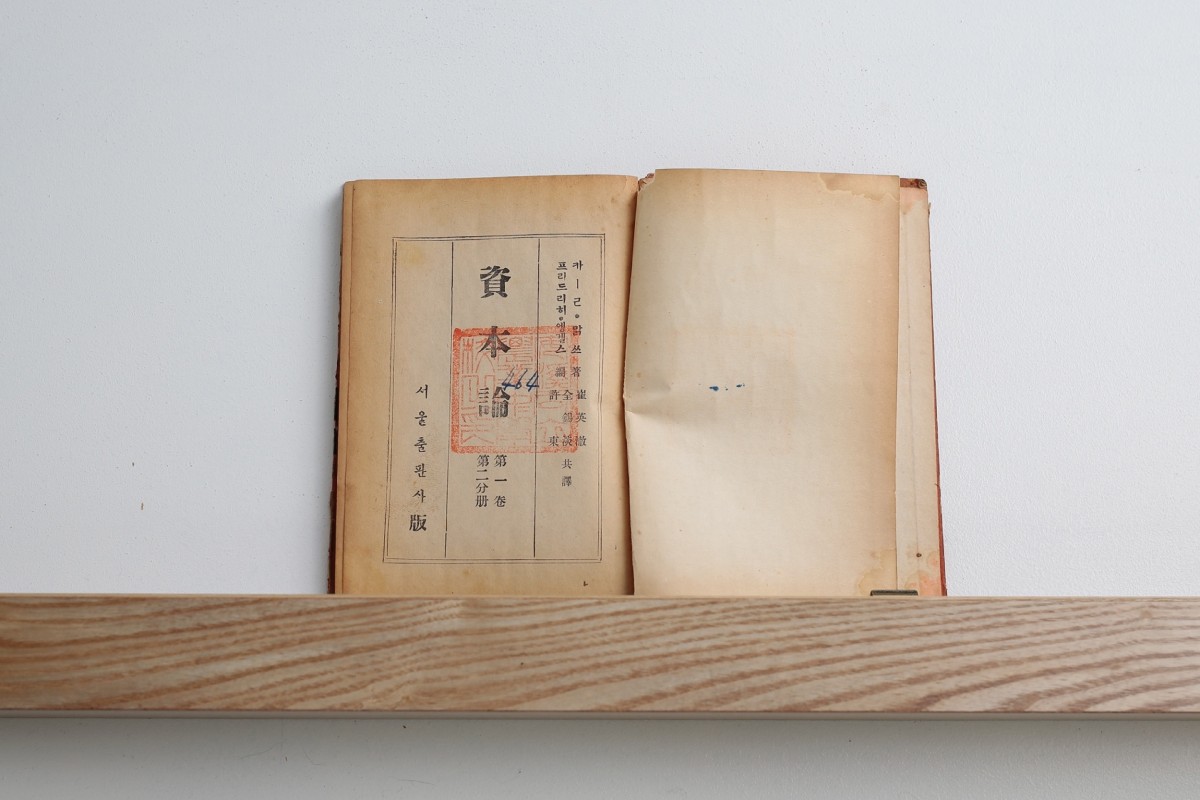 카ーㄹ·맑쓰 著
프리드리허·엥겔스 編
崔英澈
全錫淡 共譯
許東
資本論
第一卷
第二分册
464
서울출판사版